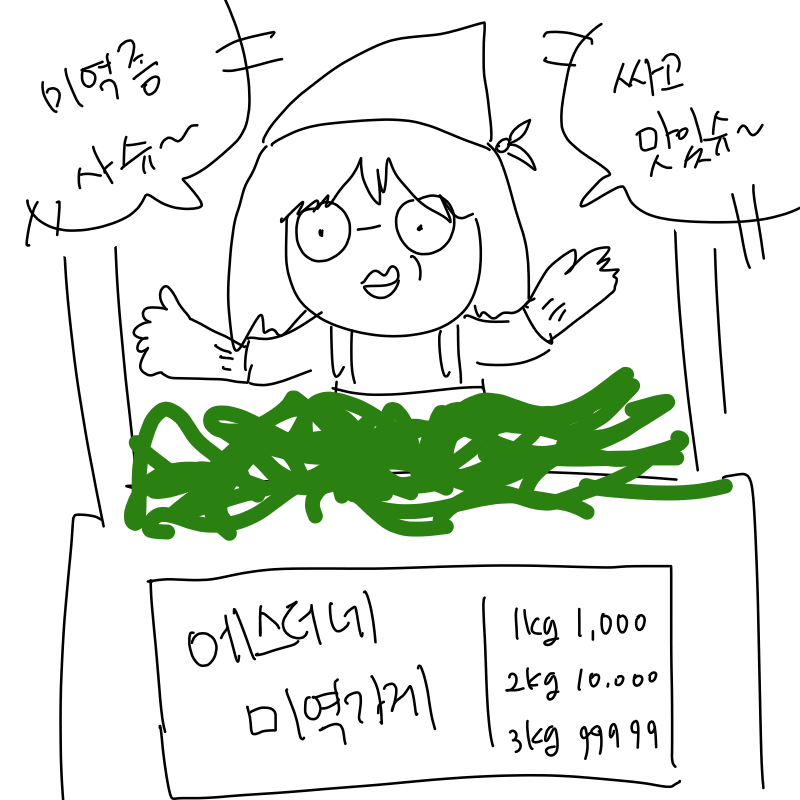 미역좀
사슈~
싸고
맛있슈~
에스더네
미역가게
1kg 1,000
2kg 10.000
3kg 99999